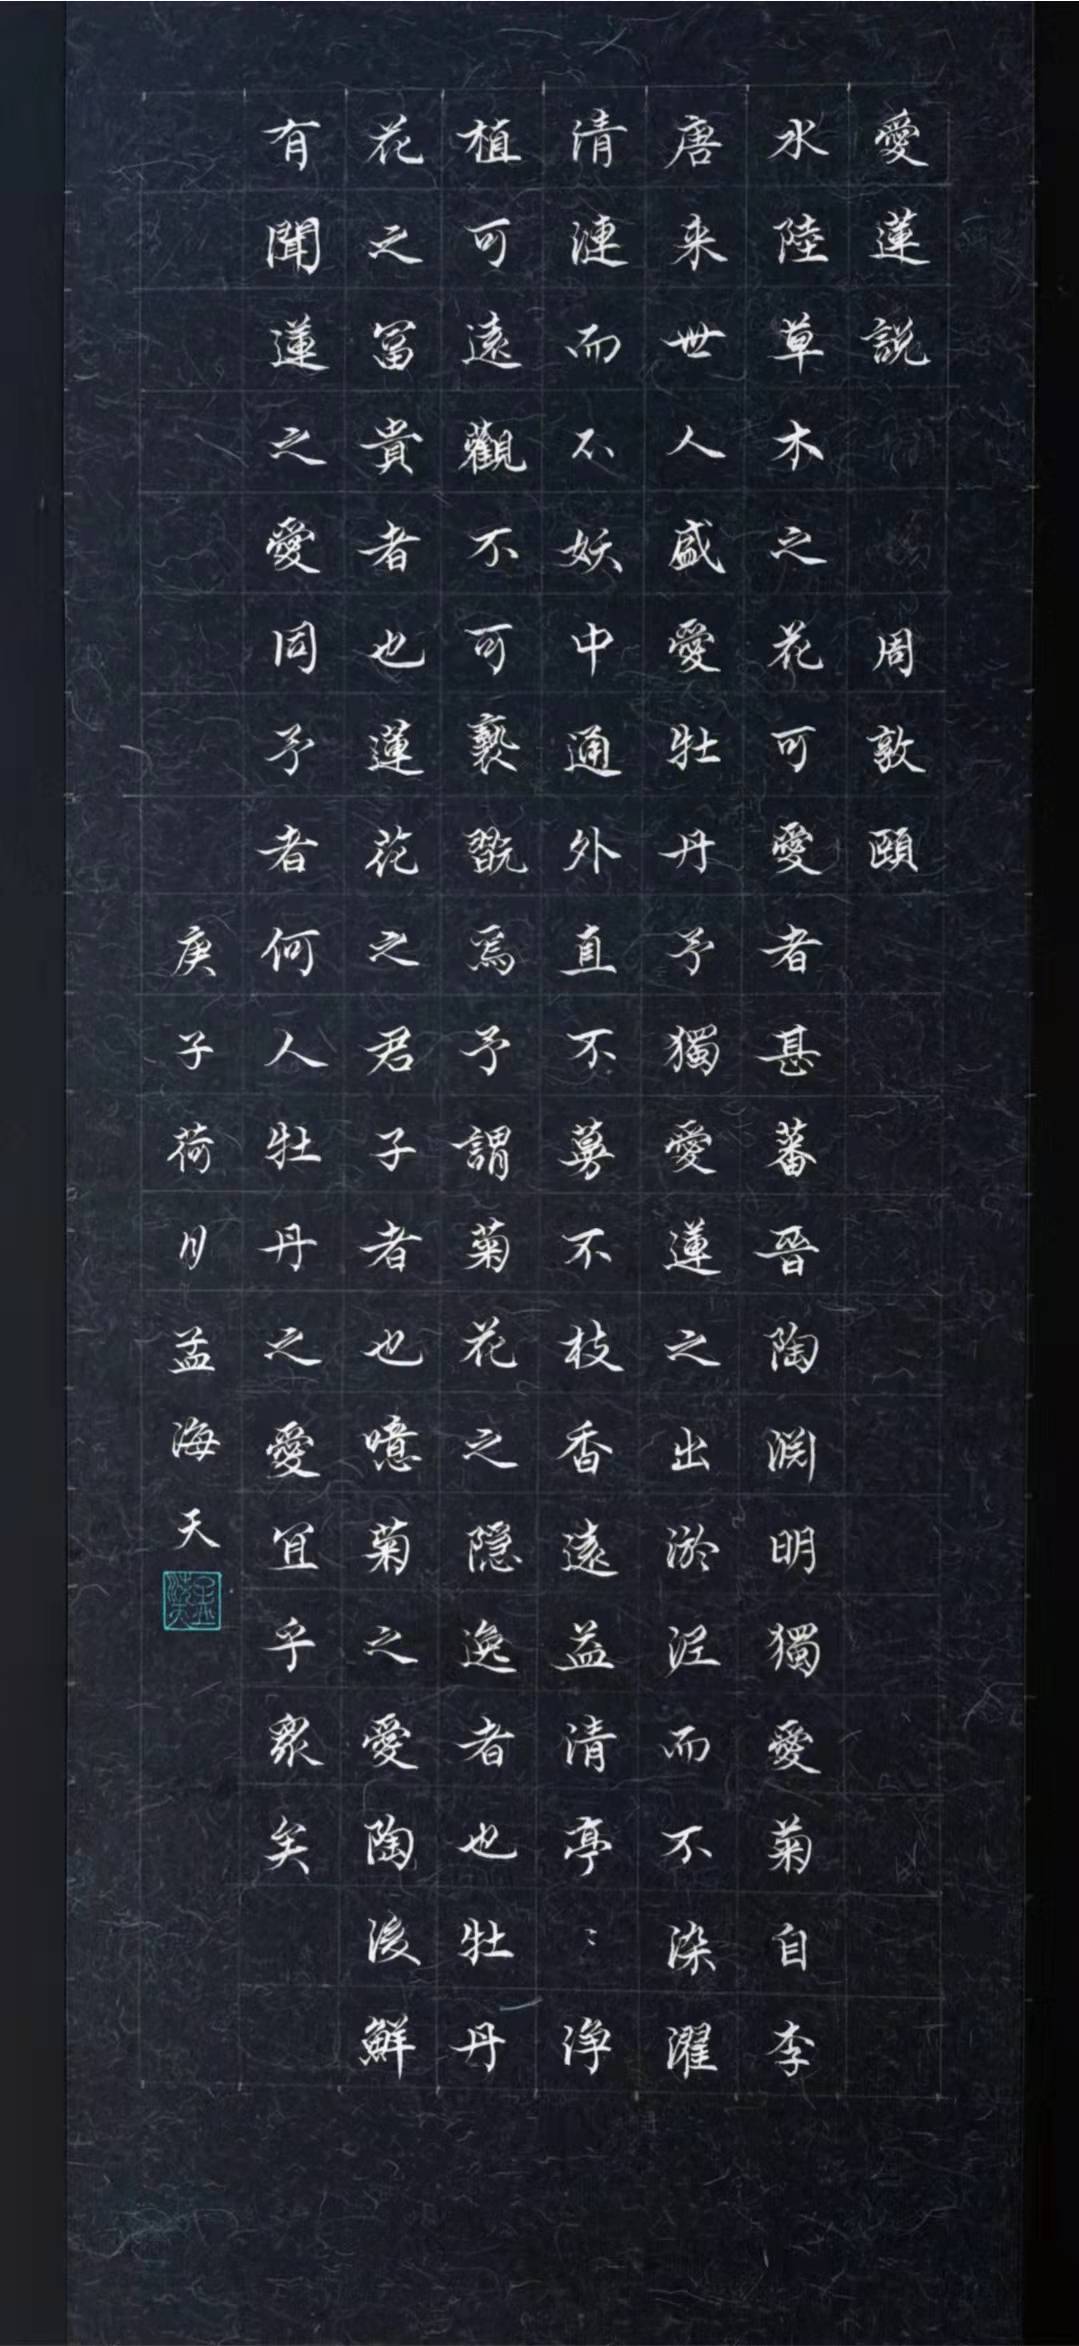 愛蓮説 周敦頤
水陸草木之花可愛者甚蕃晉陶渊明獨愛菊自李
唐来世人盛愛牡丹予獨愛蓮之出淤泥而不染濯
清漣而不妖中通外直不蔓不枝香遠益清亭〻淨
植可遠觀不可褻翫焉予謂菊花之隠逸者也牡丹
花之冨貴者也蓮花之君子者也噫菊之愛陶後鮮
有聞蓮之愛同予者何人牡丹之愛宜乎衆矣
庚子荷月孟海天